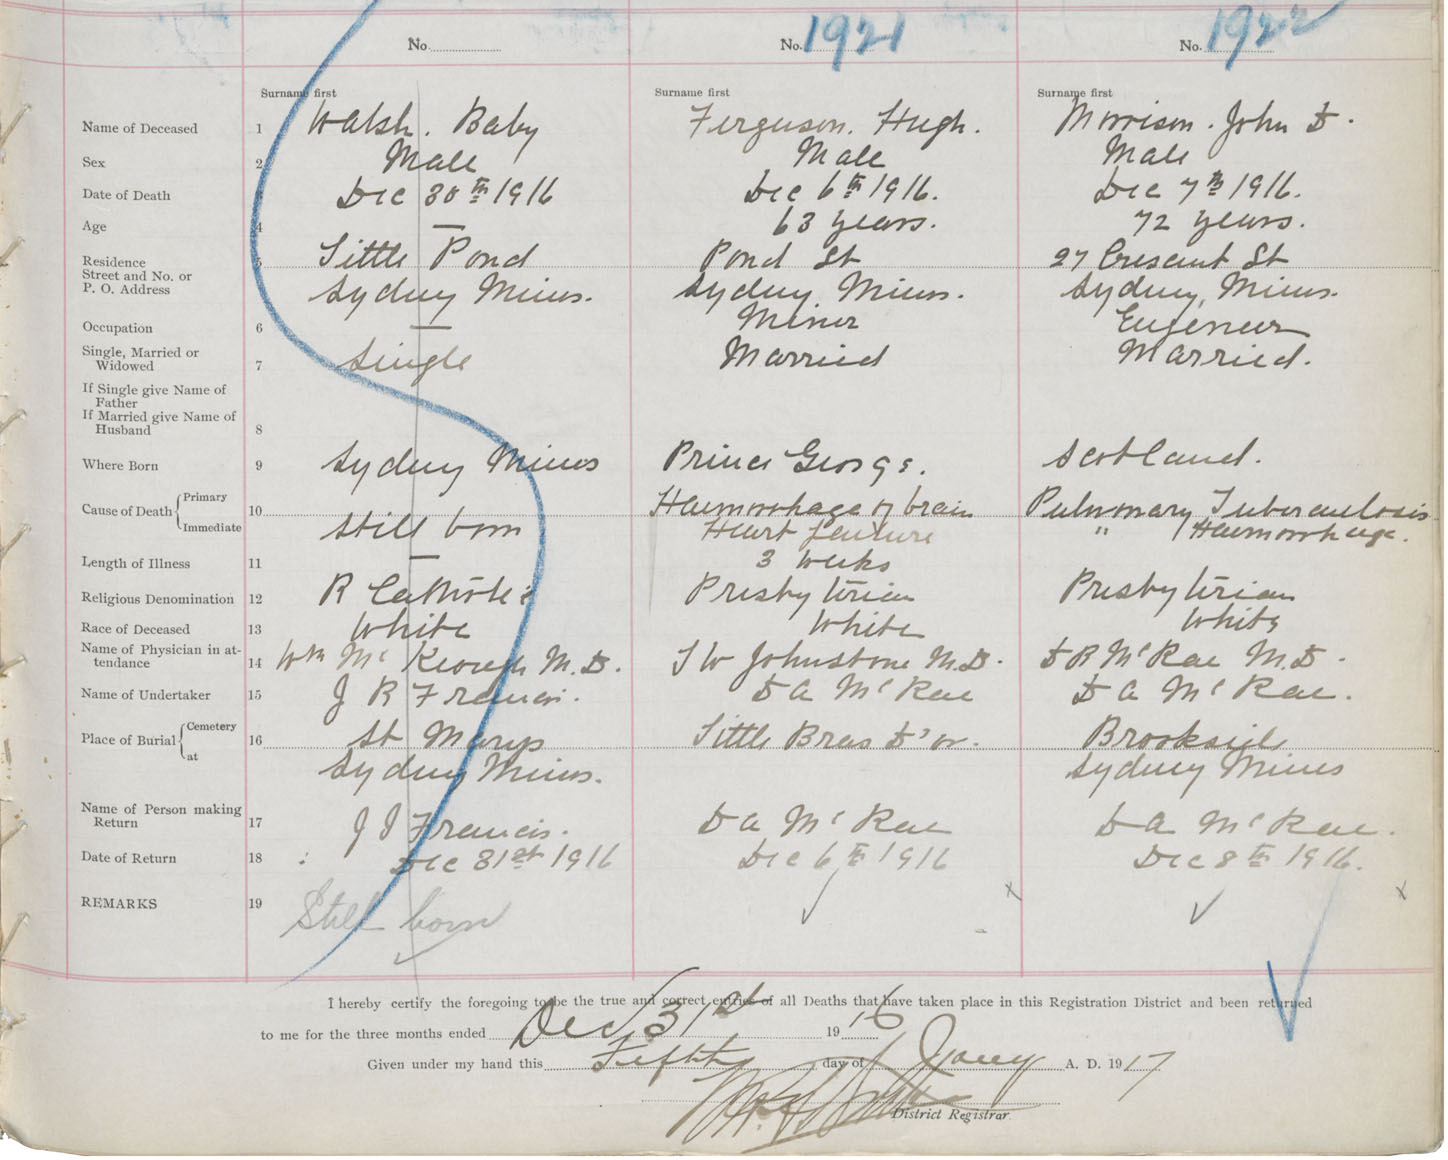 No. No. 1921 No. 1922
Surname first Surname first Surname first
Name of Deceased 1 Walsh. Baby Ferguson. Hugh. Morrison. John D.
Sex 2 Male Male Male
Date of Death 3 Dec 30th 1916 Dec 6th 1916. Dec 7th 1916.
Age 4 — 63 years. 72 years.
Residence 5 Little Pond Pond St 27 Cresent St
Street and No. or
P. O. Address Sydney Mines. Sydney, Mines. Sydney, Mines.
Occupation 6 — Miner Engineer
Single, Married or
Widowed 7 Single Married Married.
If Single give Name of
Father
If Married give Name of
Husband 8
Where Born 9 Sydney Mines Prince George. Scotland.
Cause of Death { Primary 10 Haemorrhage of brain Pulmonary Tuberculosis
Immediate Still born Heart failure " Haemorrhage.
Length of Illness 11 — 3 weeks
Religious Denomination 12 R Catholic Presbyterian Presbyterian
Race of Deceased 13 White White White
Name of Physician in at-
tendance 14 Wm Mc Keough M.D. J W Johnstone M.D. D R McRae M.D.
Name of Undertaker 15 J R Francis. D A McRae D A McRae.
Place of Burial { Cemetery 16 St Marys Little Bras D'or. Brookside
at Sydney Mines. Sydney Mines
Name of Person making
Return 17 J J Francis. D A McRae D A McRae.
Date of Return 18 Dec 31st 1916 Dec 6th 1916 Dec 8th 1916.
REMARKS 19 Still born
I hereby certify the foregoing to be the true and correct entries of all Deaths that have taken place in this Registration District and been returned
to me for the three months ended Dec 31st 1916
Given under my hand this Fifth day of Jany A. D. 1917
District Registrar.